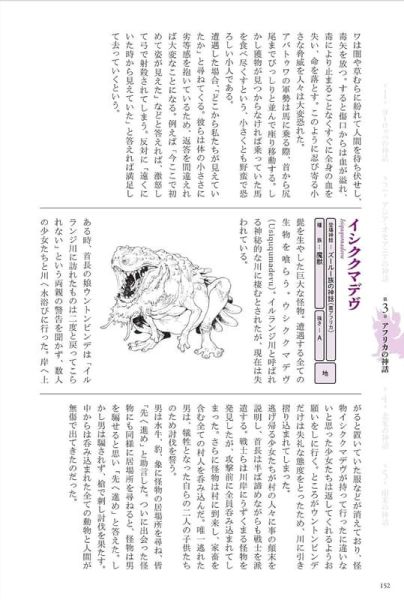 ワは闇や草むらに紛れて人間を待ち伏せし、
毒矢を放つ。すると傷口からは血が溢れ、
毒により止まることなくすぐに全身の血を
失い、命を落とす。このように忍び寄る小
さな脅威を人々は大変恐れた。
アバトゥワの軍勢は馬に乗る際、首から尻
尾までびっしりと並んで座り移動する。し
かし獲物が見つからなければ乗っていた馬
を食べ尽くすという、小さくとも野蛮で恐
ろしい小人である。
遭遇した場合、「どこから私たちが見えてい
たか」と尋ねてくる。彼らは体の小ささに
劣等感を抱いているため、返答を間違えれ
ば大変なことになる。例えば「今ここで初
めて姿が見えた」などと答えれば、激怒し
て弓で射殺されてしまう。反対に「遠くに
いた時から見えていた」と答えれば満足し
て去っていくという。
第3章 アフリカの神話
イシククマデヴ
Isiququmadevu
登場神話:ズールー族の神話(南アフリカ)
種 族:魔獣
強さ:A
地
髭を生やした巨大な怪物。遭遇する全ての
生物を喰らう。ウシククマデヴ
(Usiququmadevu)、イルランジ川と呼ばれ
る神秘的な川に棲むとされたが、現在は失
われている。
ある時、首長の娘ウントンビンデは「イル
ランジ川に訪れたものは二度と戻ってこら
れない」という両親の警告を聞かず、数人
の少女たちと川へ水浴びに行った。岸へ上
がると置いていた服などが消えており、怪
物イシククマデヴが持って行ったに違いな
いと思った少女たちは返してくれるようお
願いをしに行く。ところがウントンビンデ
だけは失礼な態度をとったため、川に引き
摺り込まれてしまった。
逃げ帰る少女たちが村の人々に事の顛末を
説明し、首長は半ば諦めながらも戦士を派
遣する。戦士らは川岸にうずくまる怪物を
発見したが、攻撃前に全員呑み込まれてし
まった。さらに怪物は村に到来し、家畜を
含む全ての村人を呑み込んだ。唯一逃れた
男は、犠牲となった自らの二人の子供たち
のため討伐を誓う。
男は水牛、豹、象に怪物の居場所を尋ね、皆
「先へ進め」と助言した。ついに出会った怪
物にも同様に居場所を尋ねると、怪物は男
を騙せると思い「先へ進め」と答えた。し
かし男は騙されず、槍で刺し討伐を果たす。
中からは呑み込まれた全ての動物と人間が
無傷で出てきたのだった。
152